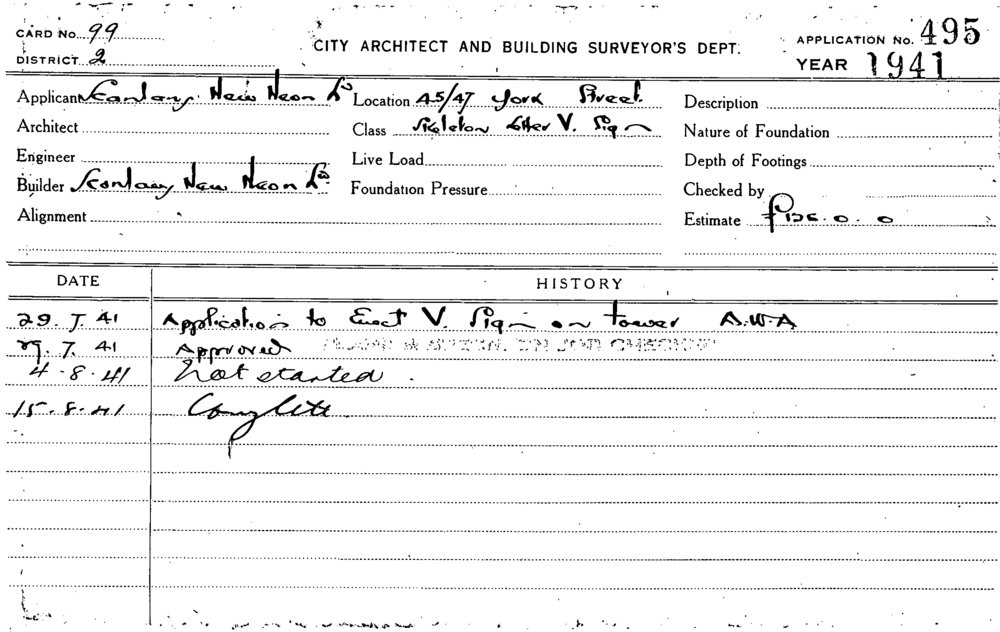 CARD No. 99
DISTRICT 2
CITY ARCHITECT AND BUILDING SURVEYOR'S DEPT.
APPLICATION No. 495
YEAR 1941
Applicant New Neon Ld
Location 45/47 York Street.
Description
Architect
Class Skeleton letter V. Sign
Nature of Foundation
Engineer
Live Load
Depth of Footings
Builder New Neon Ld.
Foundation Pressure
Checked by
Alignment
Estimate £125.0.0
DATE
HISTORY
29.7.41 Application to Erect V. Sign on tower A.W.A
29.7.41 Approved
4-8-41 Not started.
15-8-41 Complete.